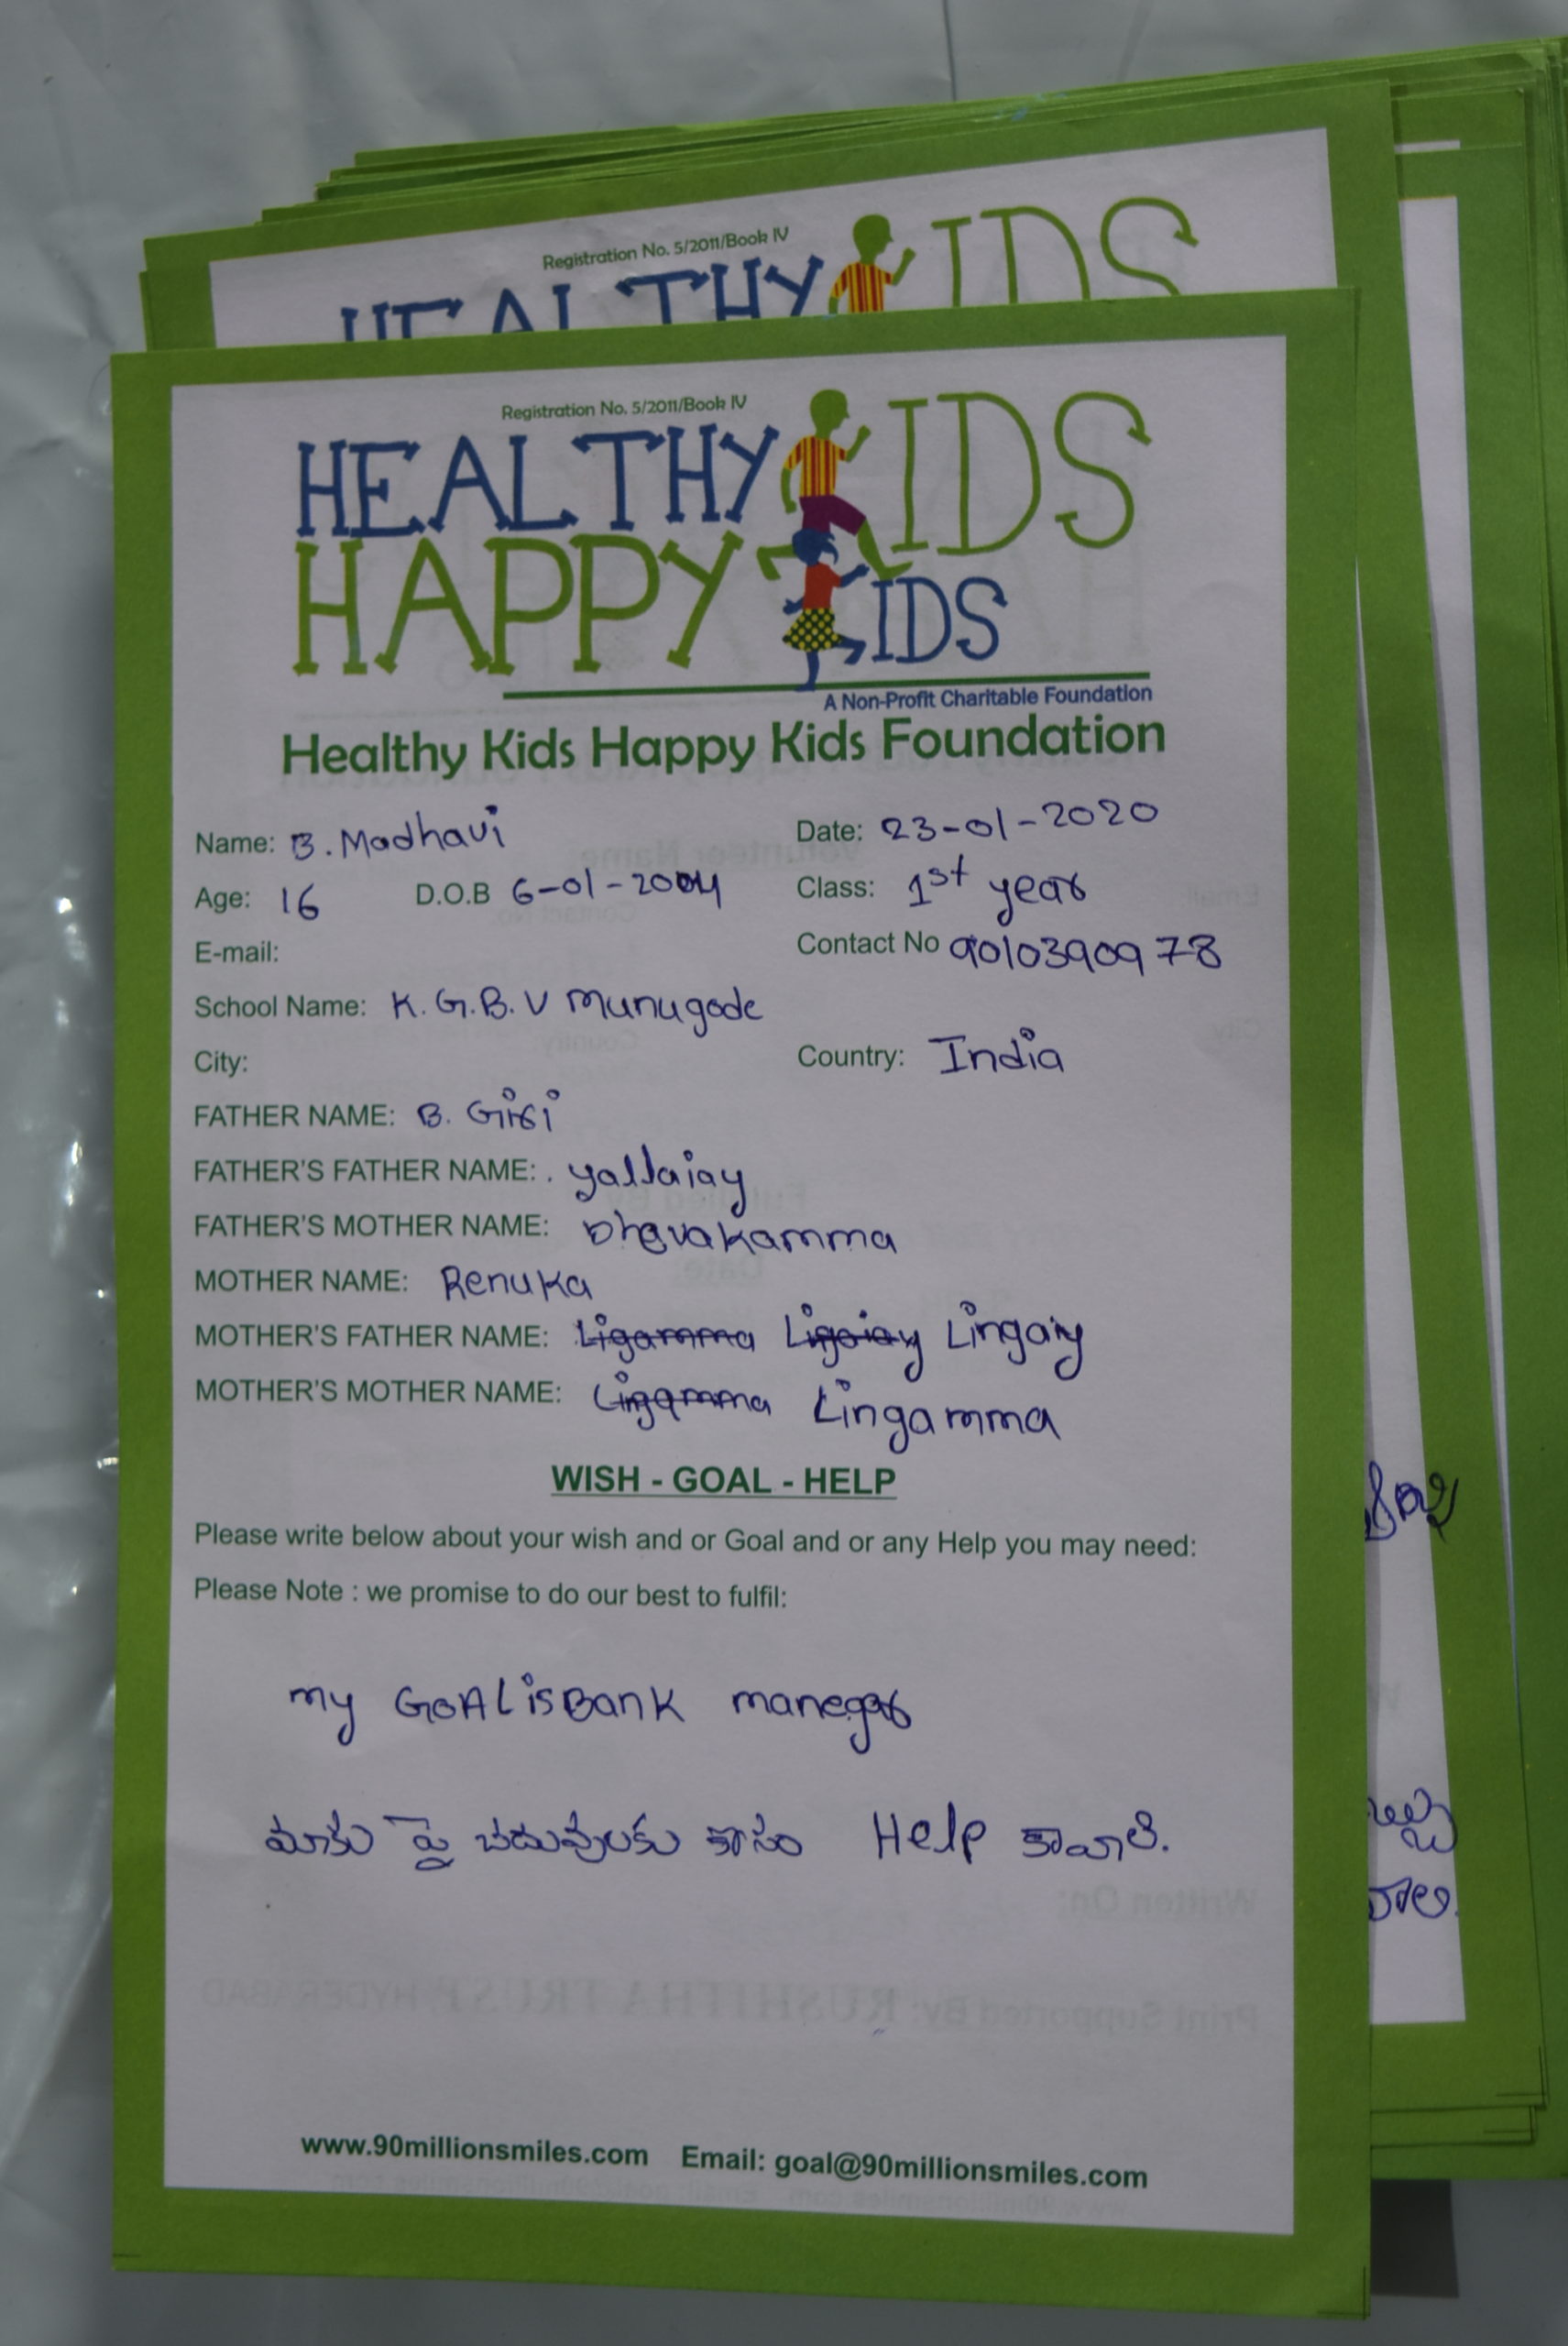 Registration No. 5/2011/Book IV
HEALTHY KIDS
Registration No. 5/2011/Book IV
HEALTHY KIDS
HAPPY KIDS
A Non-Profit Charitable Foundation
Healthy Kids Happy Kids Foundation
Name: B. Madhavi Date: 23-01-2020
Age: 16 D.O.B 6-01-2004 Class: 1st year
E-mail: Contact No 9010390978
School Name: K.G.B.V Munugode
City: Country: India
FATHER NAME: B. Giri
FATHER'S FATHER NAME: . yallaiay
FATHER'S MOTHER NAME: Dhevakamma
MOTHER NAME: Renuka
MOTHER'S FATHER NAME: Ligamma Ligaiay Lingaiy
MOTHER'S MOTHER NAME: Ligamma Lingamma
WISH - GOAL - HELP
Please write below about your wish and or Goal and or any Help you may need:
Please Note : we promise to do our best to fulfil:
my GOAL is Bank maneger
మాకు పై చదువులకు కోసం Help కావాలి.
www.90millionsmiles.com Email: goal@90millionsmiles.com